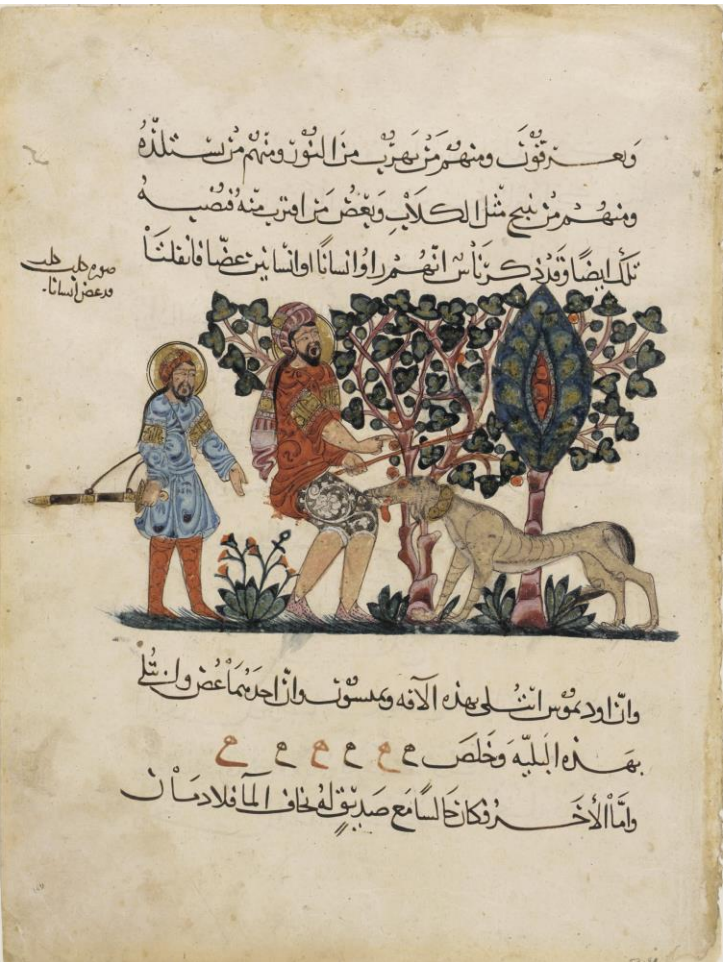 ويعرقون ومنهم من يهرب من النور ومنهم من يستلذه
ومنهم من ينبح مثل الكلاب وبعض من اقترب منه فتصيبه
تلك ايضا وقد ذكر ناس انهم راوا انسانا او انسانين عضا فانفلتا
صورة كلب كلب
قد عض انسانا
وان اوديموس ابتلى بهذه الآفه وان احدهما عض وابتلي
بهذه البليه وخلص ه ه ه ه ه ه
واما الأخر فكان جالسا مع صديق له يخاف الما فلا